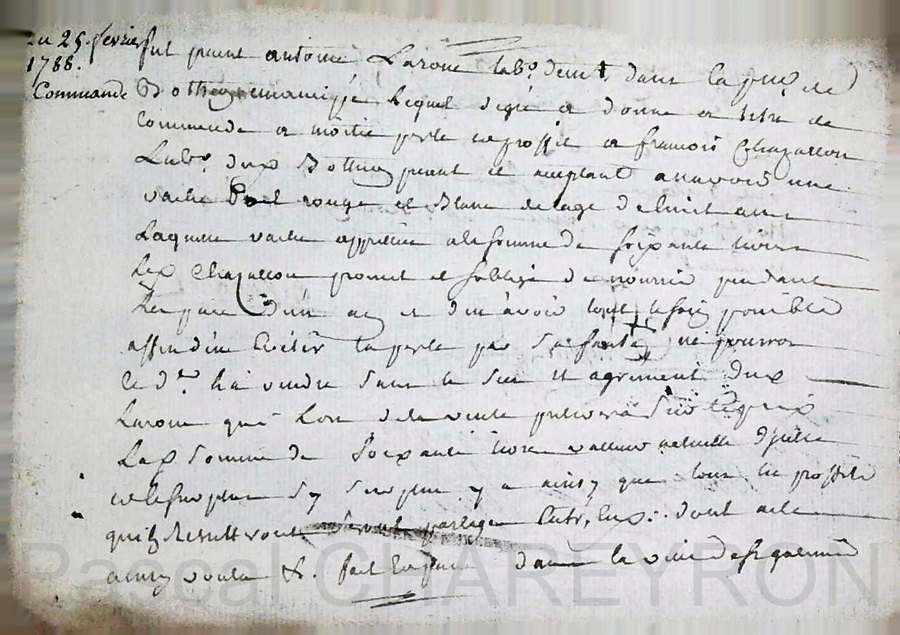 Du 25. fevrier
1788.
Commande
fut pnt antoine Laroue labr. demt. dans la psse. de
Bothey emancipé Lequel de gré a donné a titre de
Commande a moitié perte et proffit a francois Chazallon
Labr. dud Bothey pnt et acceptant a scavoir une
vache Poil rouge et Blanc de lage de huit ans
Laquelle vache appretiée a la somme de soixante livres
Led Chazallon promet et soblige de nourrir pendant
Lespace d'un an et d'en avoir tout le soin possible
affin d'en Eviter la perte par sa faute, ne pourra
le d. la vendre sans le sceu et agrement dud
Laroue qui Lors de la vente prelevera sur le prix
Lad somme de soixante livres valleur actuelle d'jcelle
et le surplus s'y surplus y a ainsy que tous les proffits
qui En Resulteront seront partagés Entre Eux: dont acte
ainsy voulu &. fait Et passé dans la ville de
Pascal CHAREYRON